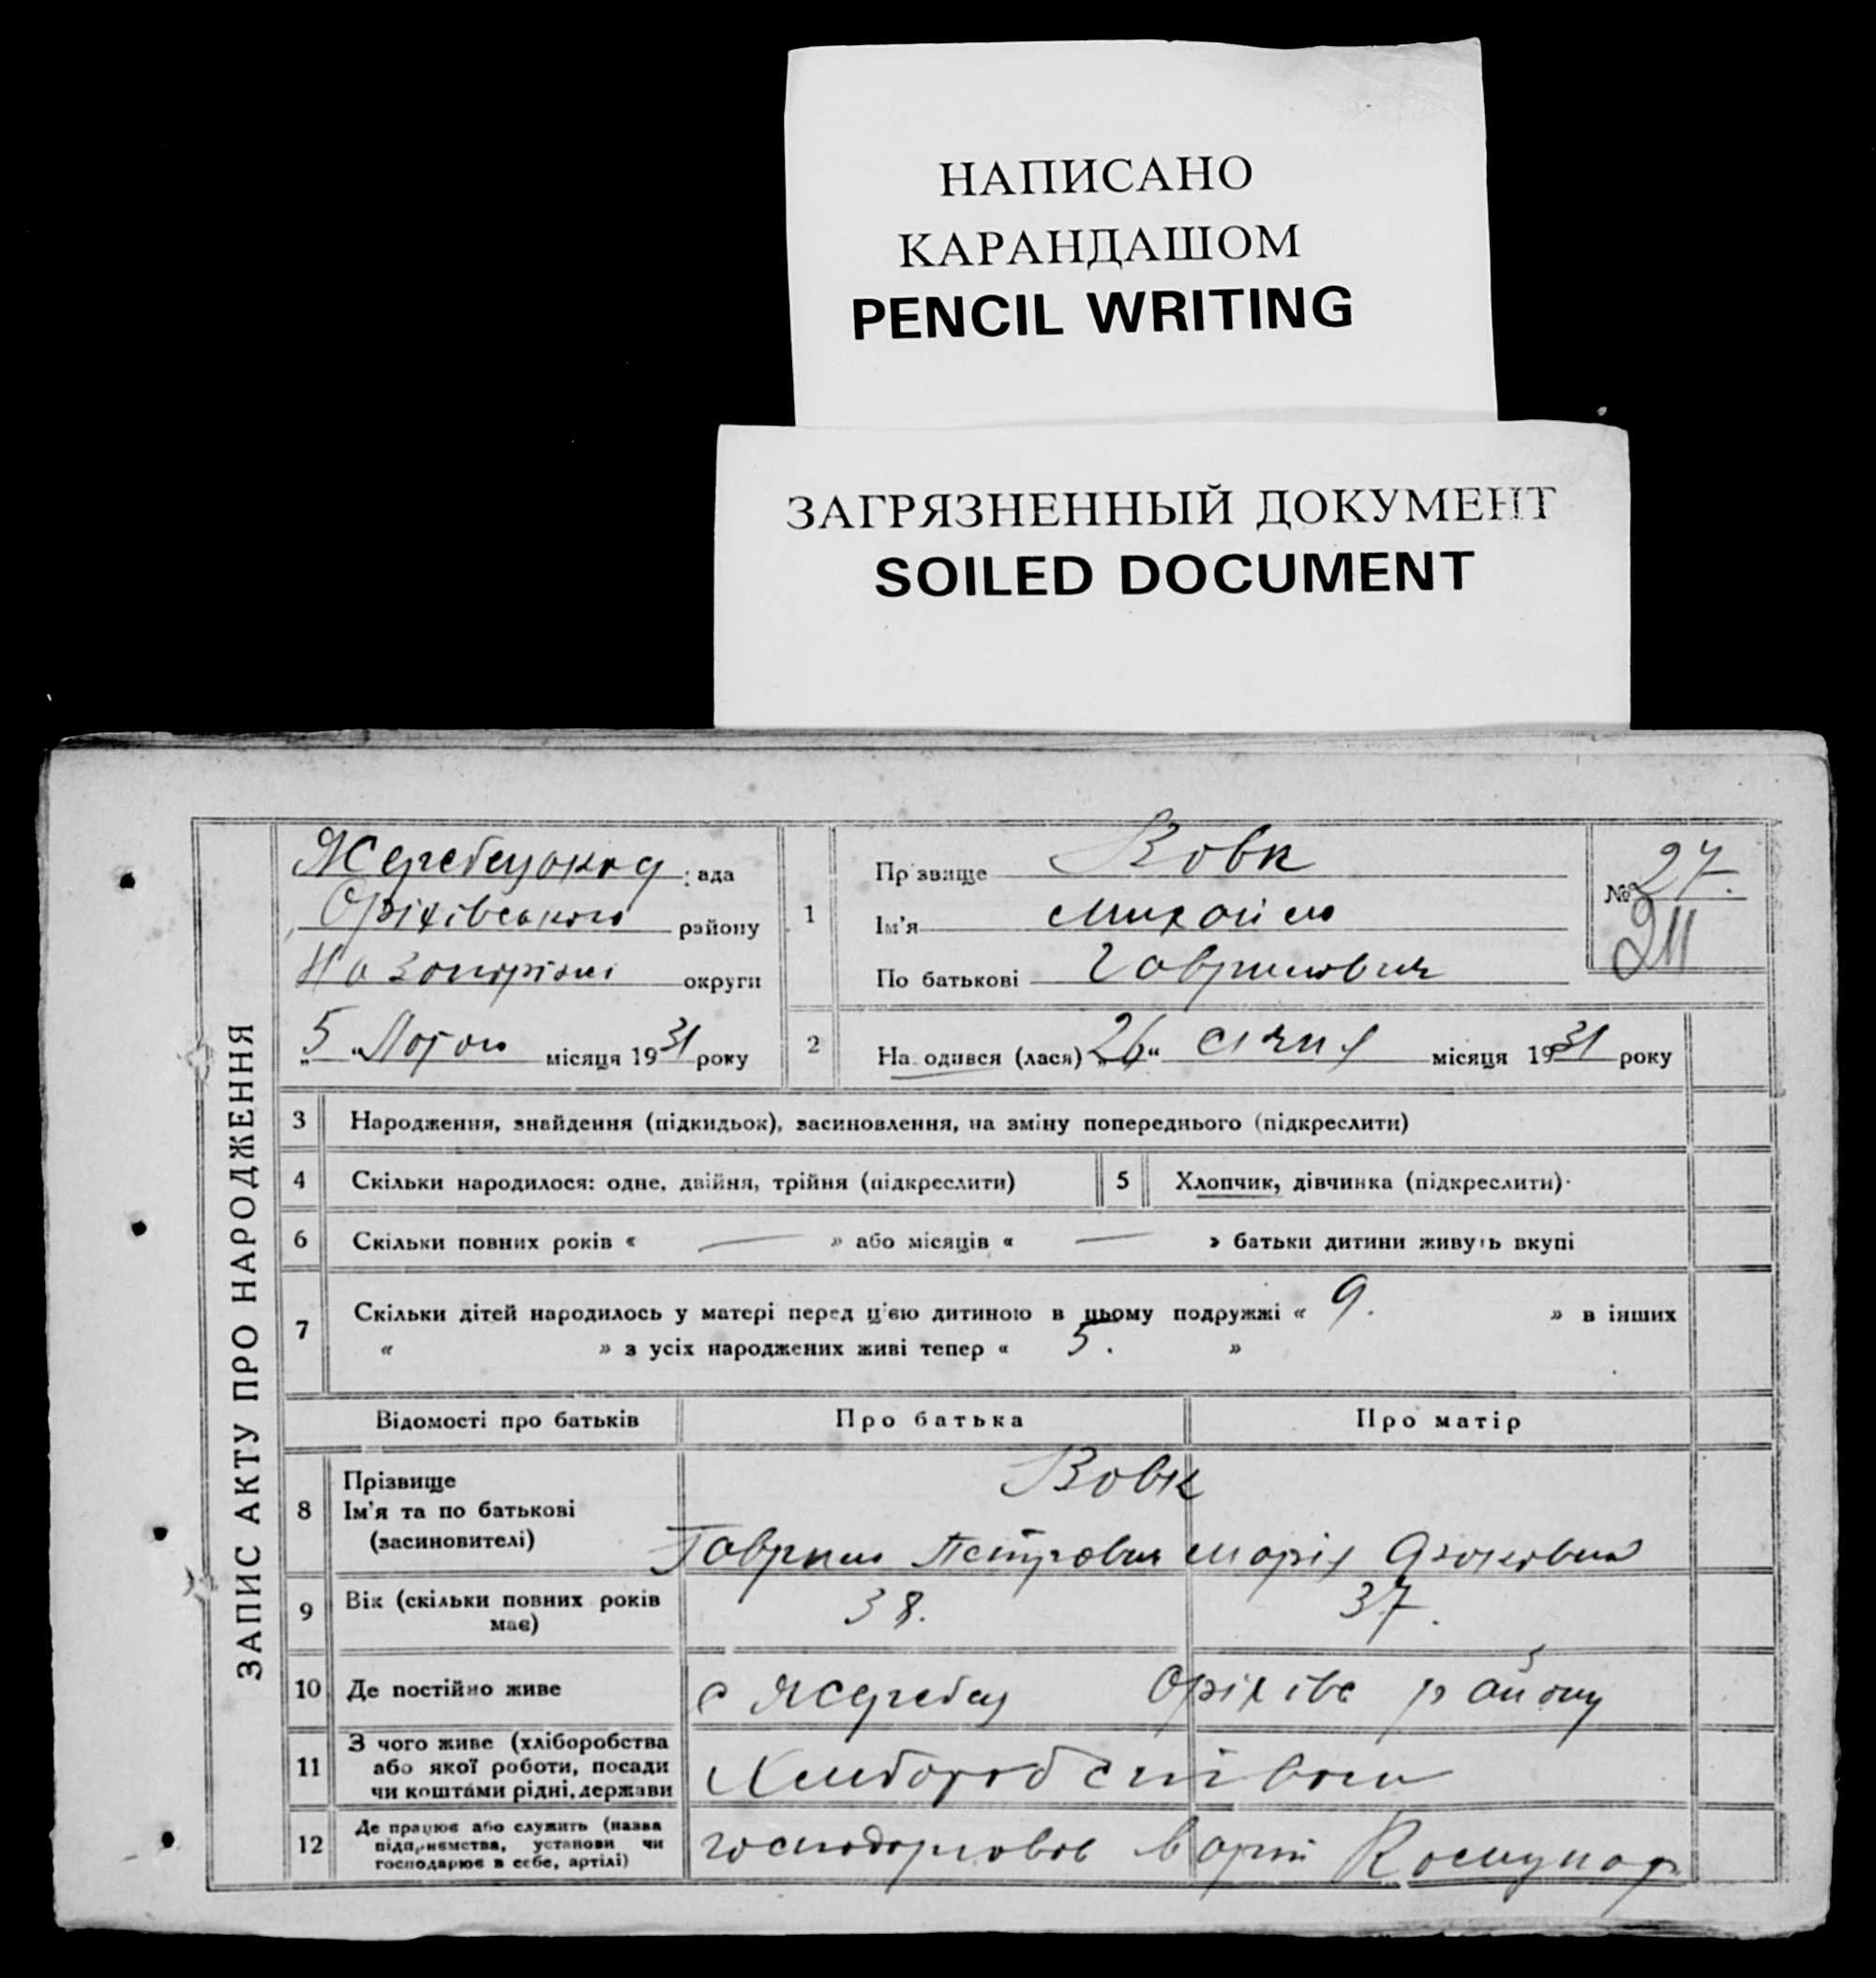 НАПИСАНО
КАРАНДАШОМ
PENCIL WRITING
ЗАГРЯЗНЕННЫЙ ДОКУМЕНТ
SOILED DOCUMENT
ЗАПИС АКТУ ПРО НАРОДЖЕННЯ
рада
Оріхівського району
На Запоріжжі округи
„5“ Лютого місяця 1931 року
1
Прізвище Вовк
Ім'я Михайло
По батькові Гаврилович
№ 27.
211
2
Народився (лася) „26“ січня місяця 1931 року
3 Народження, знайдення (підкидьок), засиновлення, на зміну попереднього (підкреслити)
4 Скільки народилося: одне, двійня, трійня (підкреслити) 5 Хлопчик, дівчинка (підкреслити)
6 Скільки повних років « — » або місяців « — » батьки дитини живуть вкупі
7 Скільки дітей народилось у матері перед цією дитиною в цьому подружжі « 9. » в інших
« » з усіх народжених живі тепер « 5. »
Відомості про батьків Про батька Про матір
8 Прізвище Вовк
Ім'я та по батькові
(засиновителі) Гаврило Петрович Марія Яковівна
9 Вік (скільки повних років 38. 37.
має)
10 Де постійно живе с Жеребец Оріхівс району
11 З чого живе (хліборобства
або якої роботи, посади
чи коштами рідні, держави Хлиборобством
12 Де працює або служить (назва
підприємства, установи чи
господарює в себе, артілі) господарював в арт Комунар